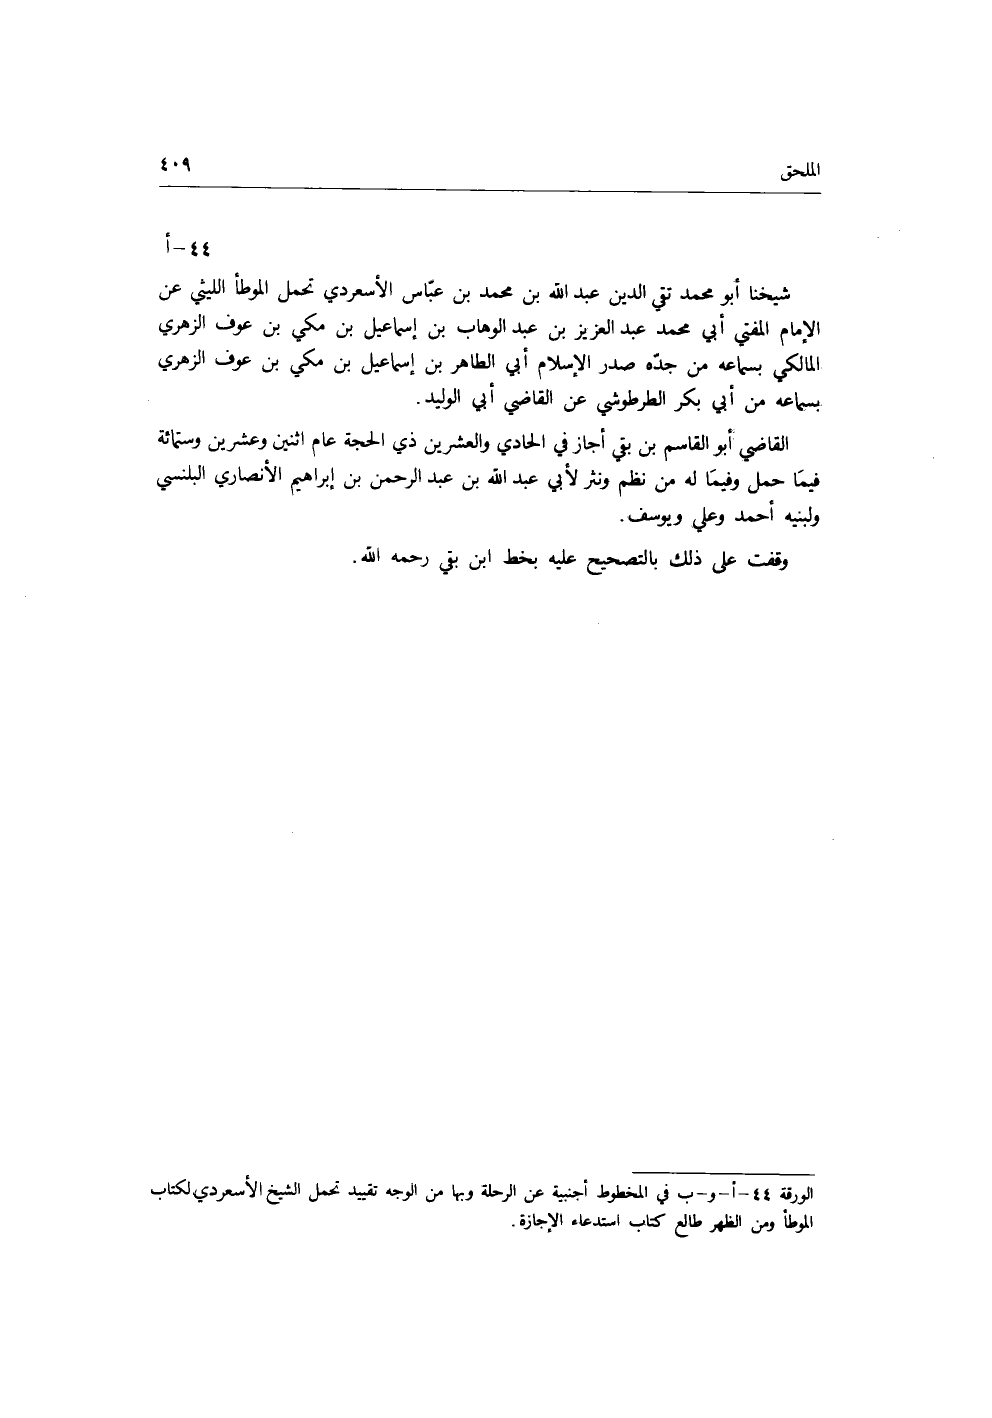 الملحق ٤٠٩
٤٤ - أ
شيخنا أبو محمد تقي الدين عبد الله بن محمد بن عبّاس الأسعردي تحمل الموطأ الليثي عن
الإمام المفتي أبي محمد عبد العزيز بن عبد الوهاب بن إسماعيل بن مكي بن عوف الزهري
المالكي بسماعه من جدّه صدر الإسلام أبي الطاهر بن إسماعيل بن مكي بن عوف الزهري
بسماعه من أبي بكر الطرطوشي عن القاضي أبي الوليد.
القاضي أبو القاسم بن بقي أجاز في الحادي والعشرين ذي الحجة عام اثنين وعشرين وستمائة
فيمَا حمل وفيمَا له من نظم ونثر لأبي عبد الله بن عبد الرحمن بن إبراهيم الأنصاري البلنسي
ولبنيه أحمد وعلي ويوسف.
وقفت على ذلك بالتصحيح عليه بخط ابن بقي رحمه الله.
الورقة ٤٤ - أ - و - ب في المخطوط أجنبية عن الرحلة وبها من الوجه تقييد تحمل الشيخ الأسعردي لكتاب
الموطأ ومن الظهر طالع كتاب استدعاء الإجازة.